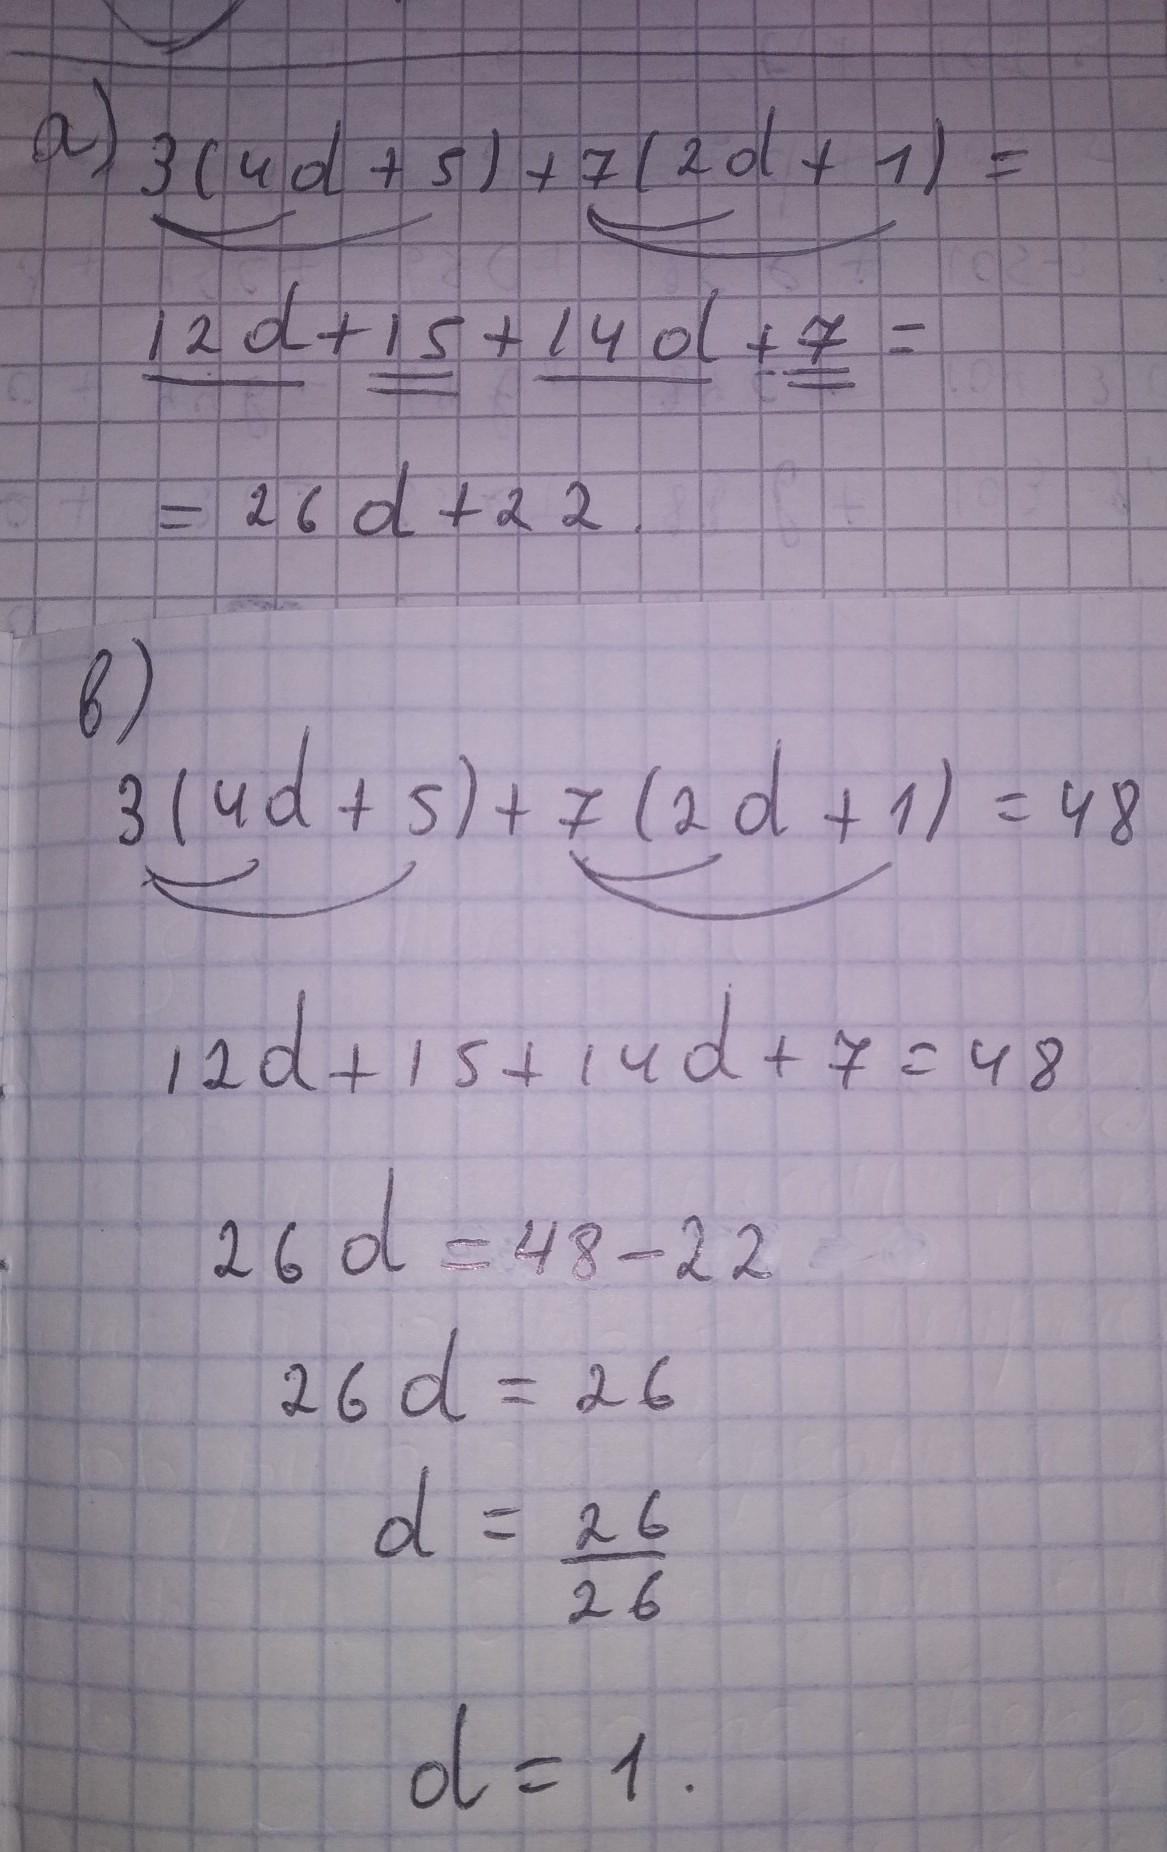 а) 3(4d+5)+7(2d+1)=
12d+15+14d+7=
=26d+22.
в)
3(4d+5)+7(2d+1)=48
12d+15+14d+7=48
26d=48-22
26d=26
d=26/26
d=1.